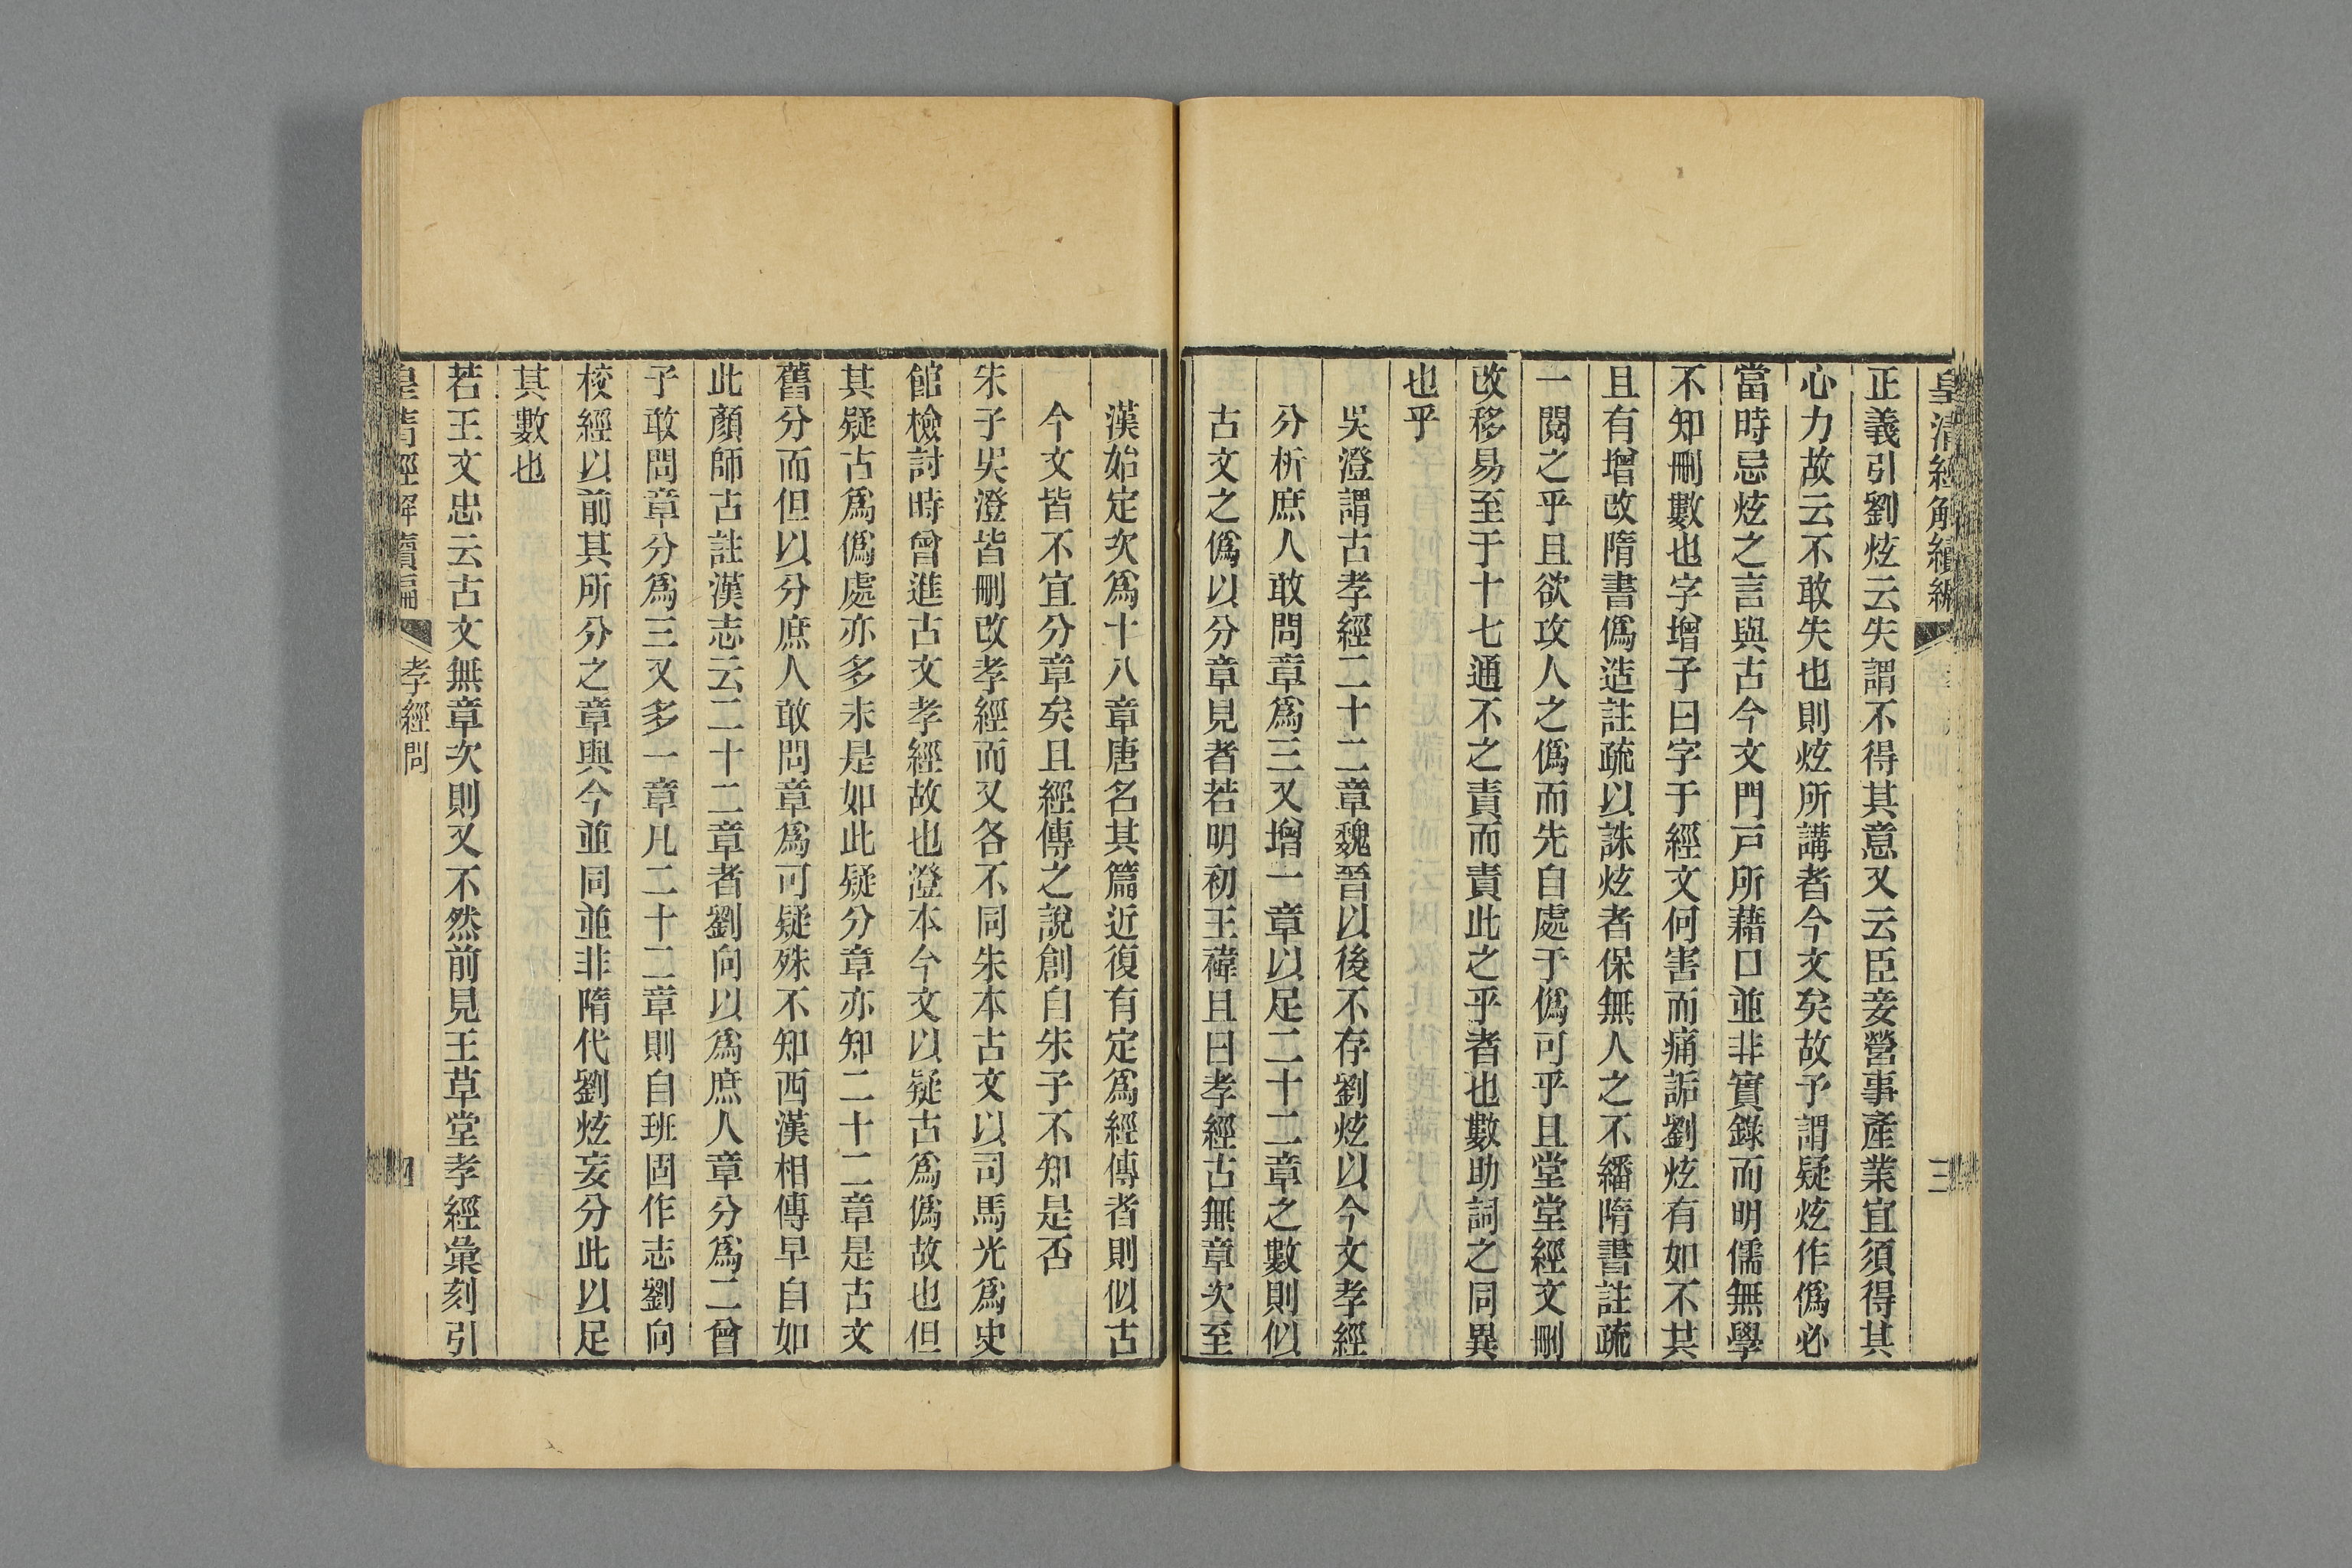 皇清經解續編
三
正義引劉炫云失謂不得其意又云臣妾營事產業宜須得其
心力故云不敢失也則炫所講者今文矣故予謂疑炫作僞必
當時忌炫之言與古今文門戸所藉口並非實錄而明儒無學
不知刪數也字增子曰字于經文何害而痛詬劉炫有如不共
且有增改隋書僞造註疏以誅炫者保無人之不繙隋書註疏
一閱之乎且欲攻人之僞而先自處于僞可乎且堂堂經文刪
改移易至于十七通不之責而責此之乎者也數助詞之同異
也乎
吳澄謂古孝經二十二章魏晉以後不存劉炫以今文孝經
分析庶人敢問章爲三又增一章以足二十二章之數則似
古文之僞以分章見者若明初王禕且曰孝經古無章次至
漢始定次爲十八章唐名其篇近復有定爲經傳者則似古
今文皆不宜分章矣且經傳之說創自朱子不知是否
朱子吳澄皆刪改孝經而又各不同朱本古文以司馬光爲史
館檢討時曾進古文孝經故也澄本今文以疑古爲僞故也但
其疑古爲僞處亦多未是如此疑分章亦知二十二章是古文
舊分而但以分庶人敢問章爲可疑殊不知西漢相傳早自如
此顏師古註漢志云二十二章者劉向以爲庶人章分爲二曾
子敢問章分爲三又多一章凡二十二章則自班固作志劉向
校經以前其所分之章與今並同並非隋代劉炫妄分此以足
其數也
若王文忠云古文無章次則又不然前見王草堂孝經彙刻引
皇清經解續編
孝經問
四